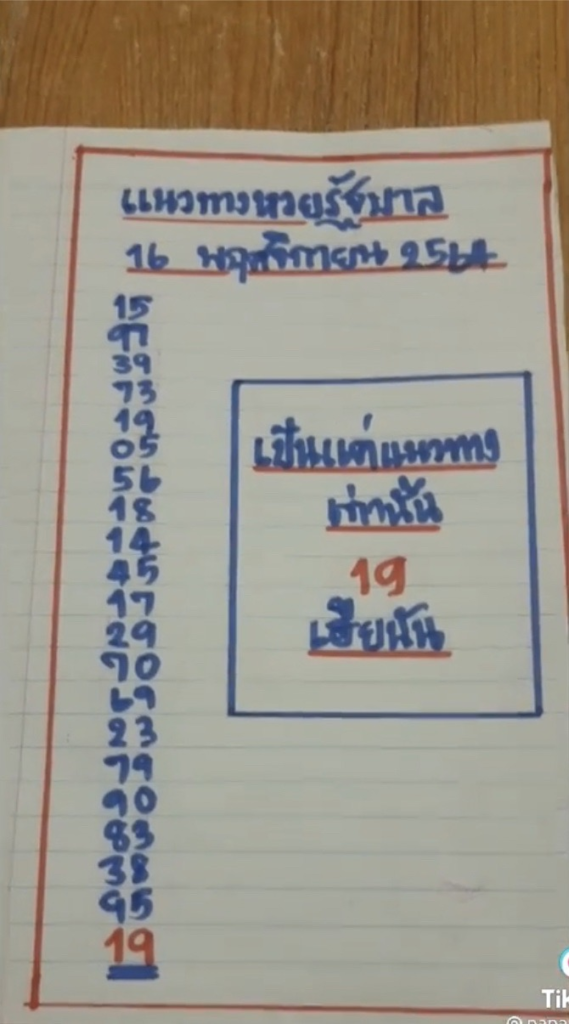 แนวทางหวยรัฐบาล
16 พฤศจิกายน 2564
15
97
39
73
19
05
56
18
14
45
17
29
70
69
23
79
90
83
38
95
19
เป็นแค่แนวทาง
เท่านั้น
19
เฮียนัน
Tik